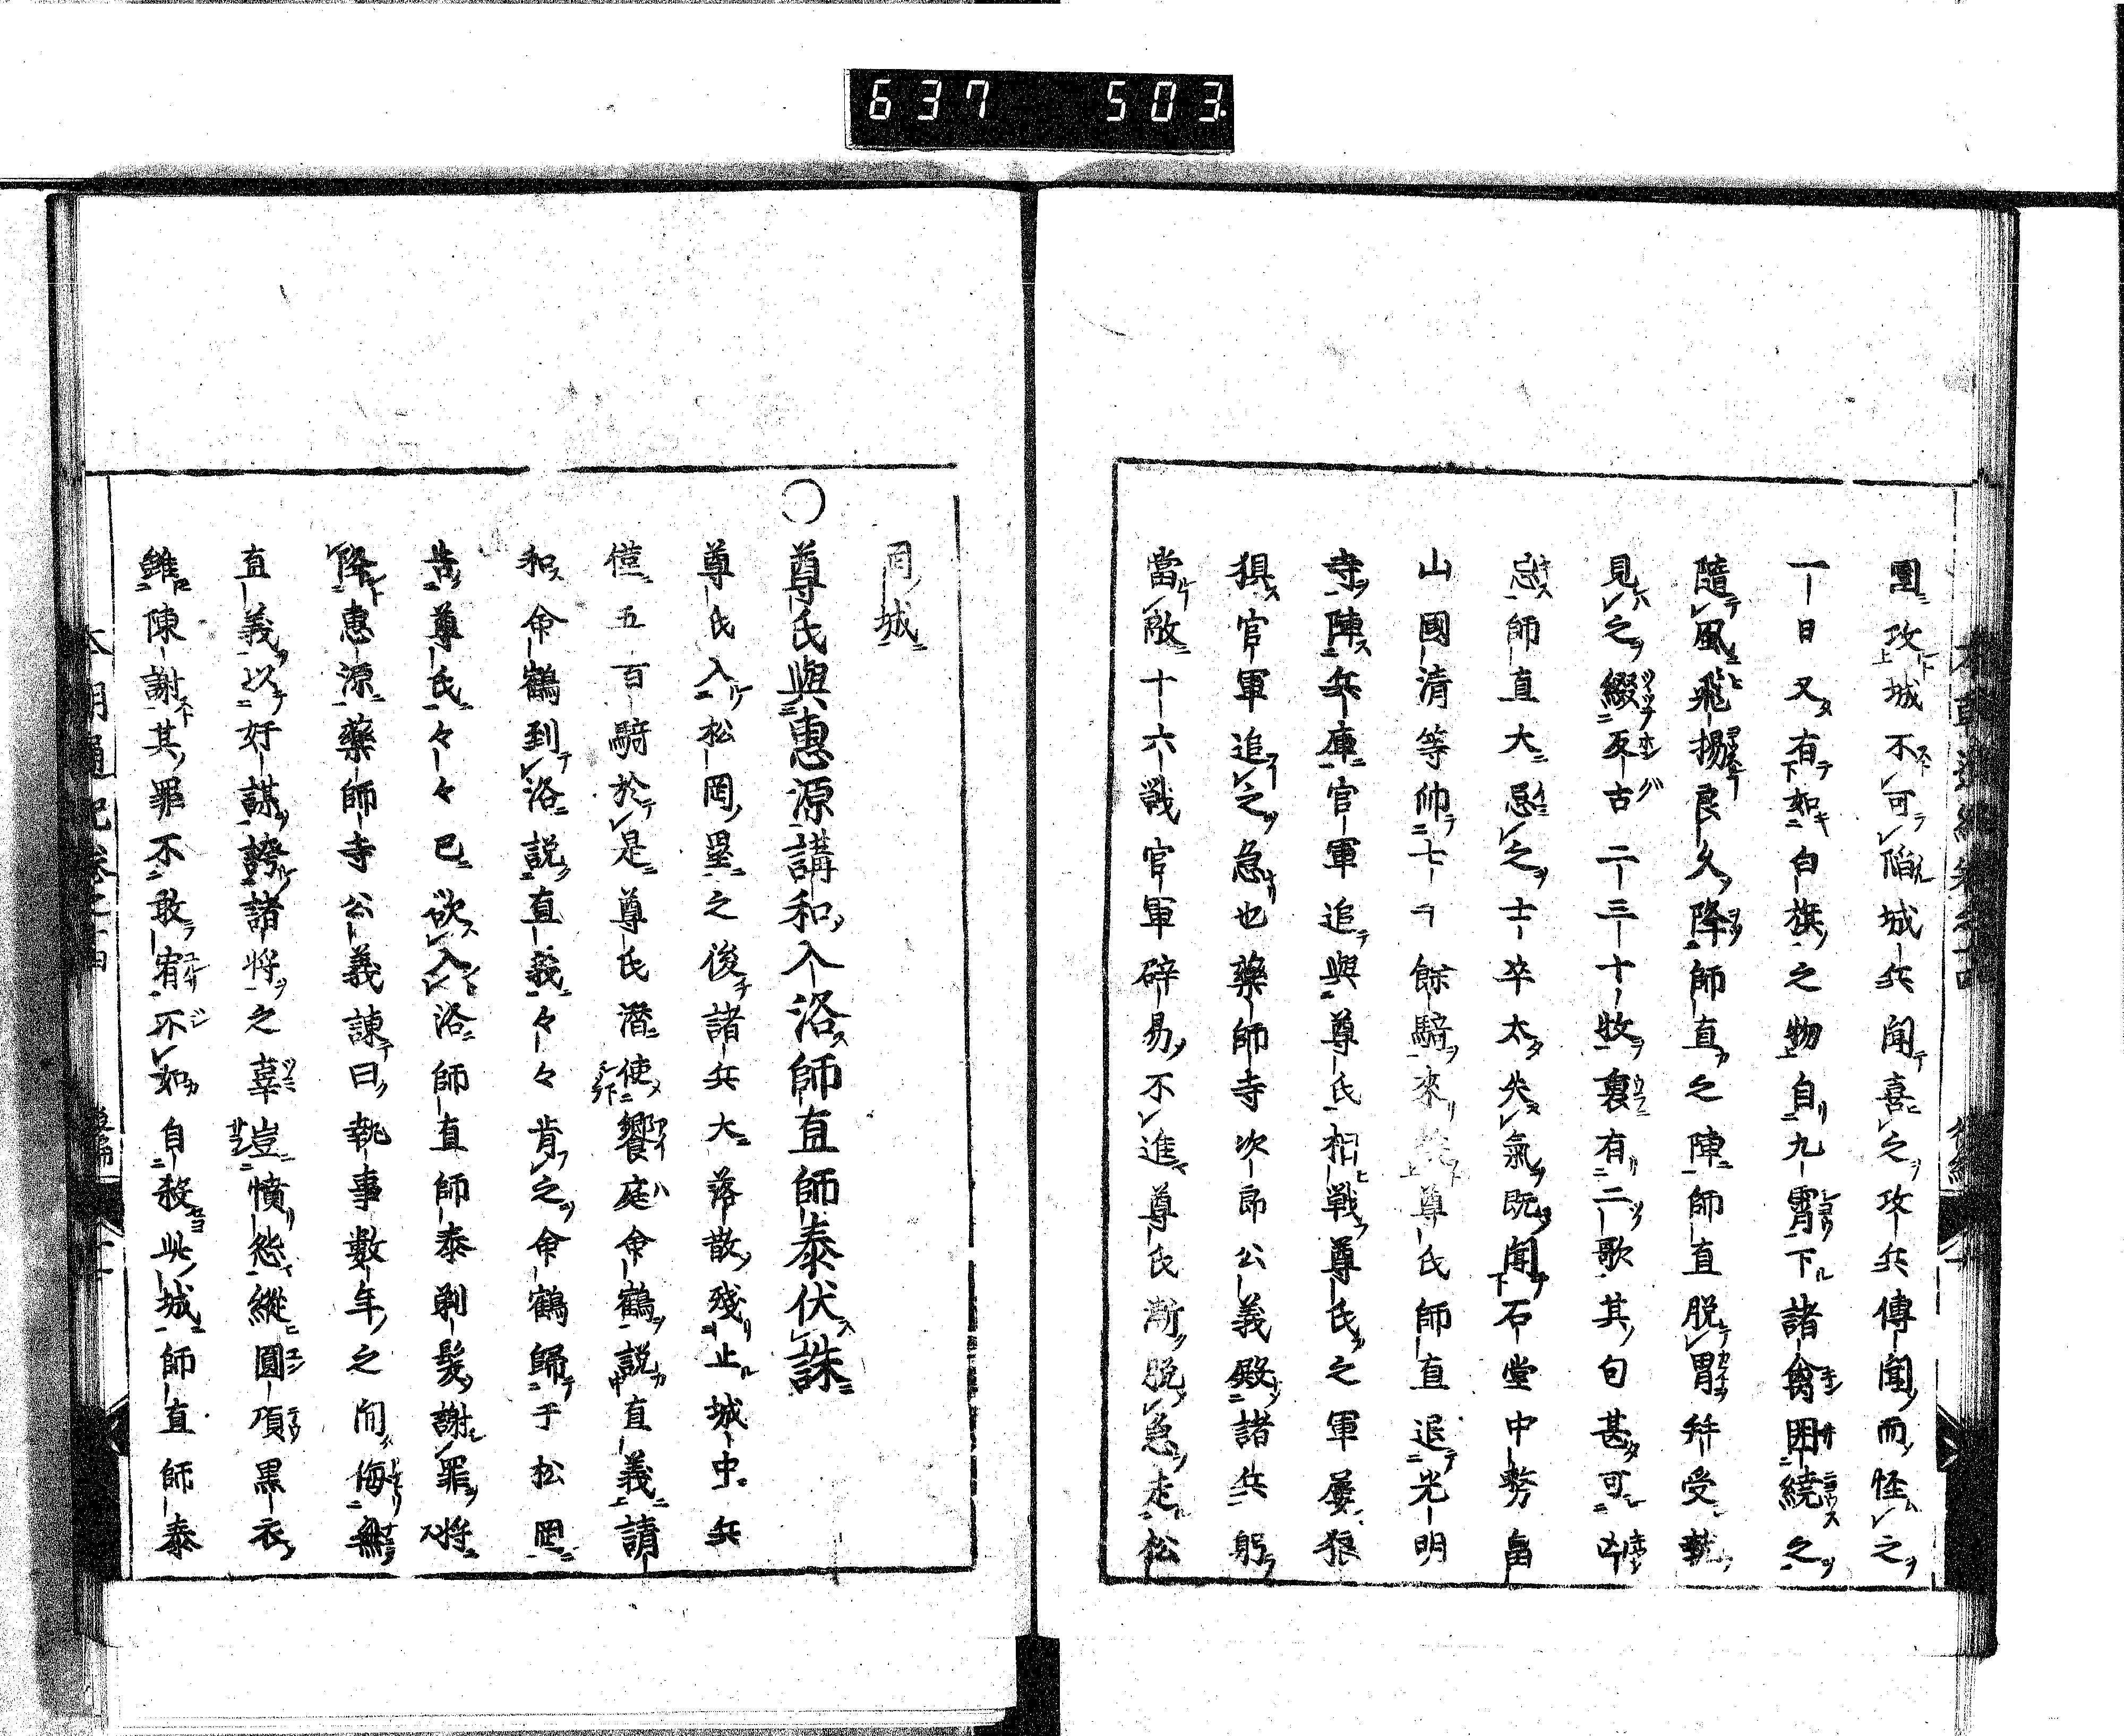 637 503
圍攻城不可陷城兵聞喜之攻兵傳聞而怪之
一日又有如白旗之物自九霄下諸禽囲繞之
隨風飛揚良久降師直之陣師直脱冑拜受
見之綴反古二三十牧裏有二歌其句甚可凶
忌師直大忌之士卒太失氣既聞石堂中務
山國清等帥七千餘騎來 尊氏師直追光明
寺陣兵庫官軍追與尊氏相戦尊氏之軍屢狼
狽官軍追之急也藥師寺次郎公義殿諸兵躬
當敵十六戦官軍辟易不進尊氏漸脱急走松
岡城
〇尊氏與惠源講和入洛師直師泰伏誅
尊氏入松岡壘之後諸兵大落散殘止城中兵
僅五百騎於是尊氏潜使饗庭命鶴説直義請
和命鶴到洛説直義々々肯之命鶴歸于松岡
告尊氏々々已欲入洛師直師泰剃髮謝罪将
降惠源藥師寺公義諌曰執事數年之間侮無
直義以好謀誇諸将之辜豈憤怒縱圓項黒衣
雖陳謝其罪不敢宥不如自殺此城師直師泰
本朝通紀卷之十四 後編